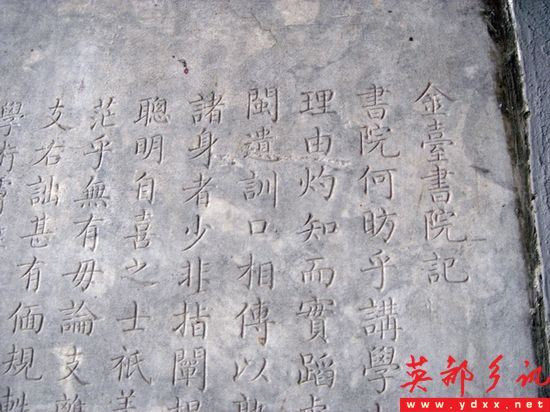 金臺書院記
書院何昉乎講學
理由灼知而實蹈
閩遺訓口相傳以
諸身者少非指闡
聰明自喜之士祇
茫乎無有毋論支離
支右詘甚有偭規
學
英都乡讯
www.ydxx.net